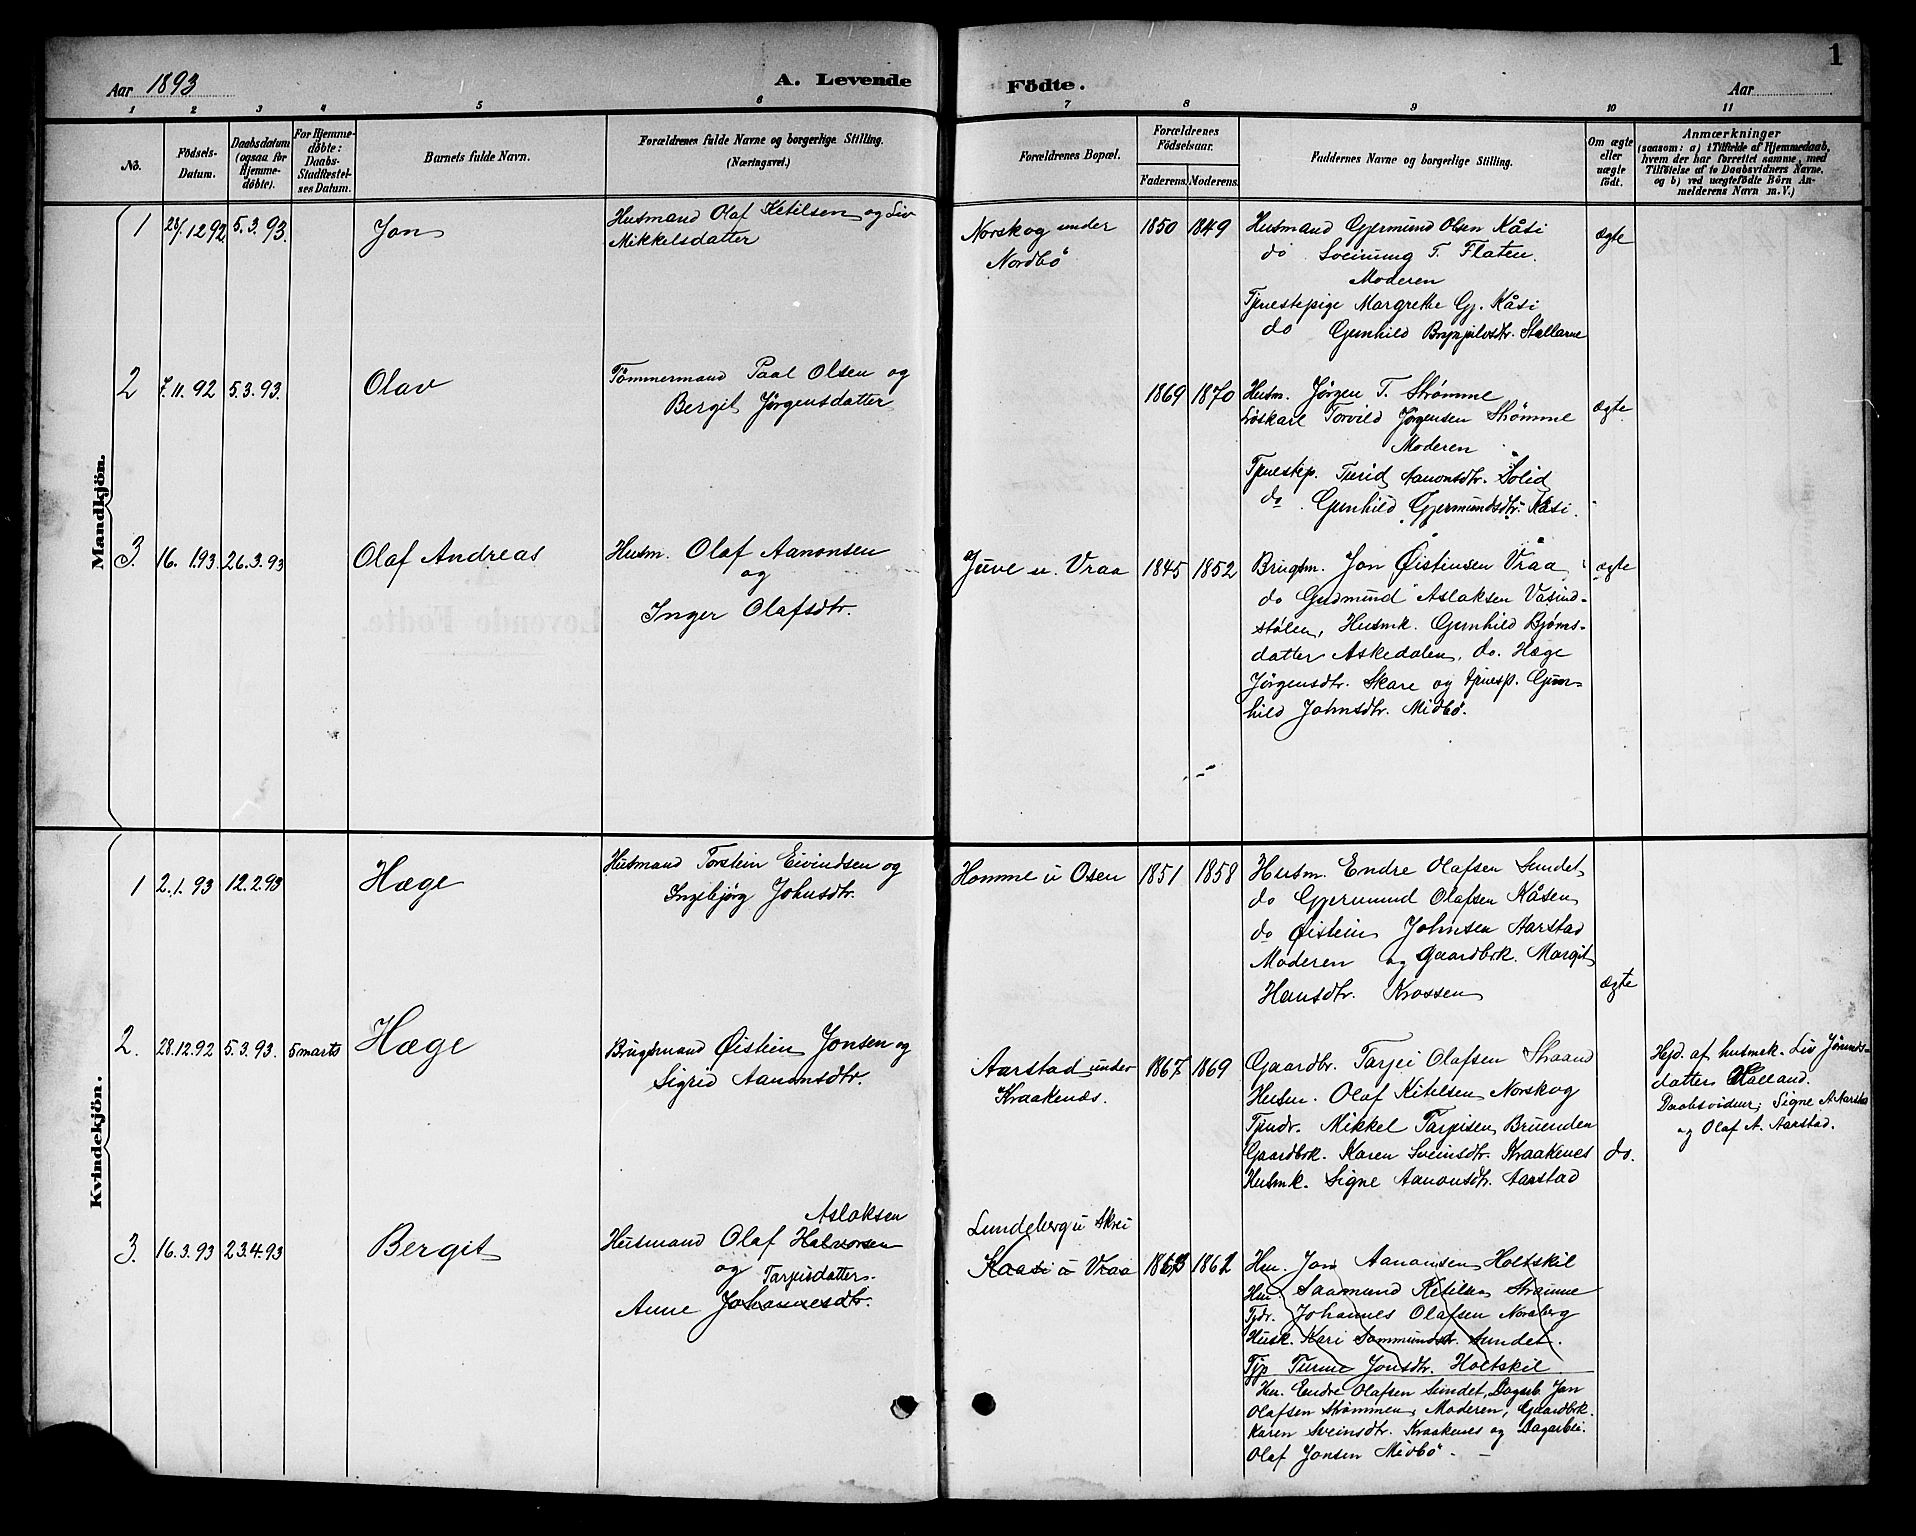 Aar 1893
A. Levende Födte.
Aar
1
1 2 3 4 5 6 7 8 9 10 11
No.
Födsels-
Datum.
Daabsdatum
(ogsaa for
Hjemme-
döbte).
For Hjemme-
döbte:
Daabs-
Stadfæstel-
ses Datum.
Barnets fulde Navn.
Forældrenes fulde Navne og borgerlige Stilling.
(Næringsvei.)
Forældrenes Bopæl.
Forældrenes
Födselsaar.
Faderens. Moderens.
Faddernes Navne og borgerlige Stilling.
Om ægte
eller
uægte
födt.
Anmærkninger
(saasom: a) i Tilfælde af Hjemmedaab,
hvem der har forrettet samme, med
Tilföielse af to Daabsvidners Navne,
og b) ved uægtefödte Börn An-
melderens Navn m. V.)
Mandkjön.
1 12 92 5.3.93. Jon
Husmand Olaf Ketilsen og Liv
Mikkelsdatter
Norskog under
Nordbö
1850 1849
Husmand Gjermund Olsen Kåsi
do Sveinung T. Flaten.
Moderen
Tjenestepige Margrethe Gj. Kåsi
do Gunhild Brynjulvsdtr. Stallarne
ægte
2 7.11.92 5.3.93. Olav
Tömmermand Paal Olsen og
Bergit Jørgensdatter
1869 1870
Husm. Jørgen T. Strømme
Löskarl Torvild Jørgensen Strømme
Moderen
Tjenestep. Turid Aanonsdtr. Solid
do Gunhild Gjermundsdtr. Kåsi.
ægte
3. 16.1.93 26.3.93 Olaf Andreas
Husm. Olaf Aanonsen
og
Inger Olafsdtr.
Juve u. Vraa
1845 1852
Brugsm. Jon Øistinsen Vråa
do Gudmund Aslaksen Vasind-
stølen, Husmk. Gunhild Bjørns-
datter Askedalen, do. Hæge
Jørgensdtr. Skare og tjenesp. Gun-
hild Johnsdtr. Midbö.
ægte
Kvindekjön.
1 2.1.93 12.2.93 Hæge
Husmand Torstein Eivindsen og
Ingebjørg Johnsdtr.
Homme u Osen
1851 1858
Husm. Endre Olafsen Sundet
do Gjermund Olafsen Kåsen
do Øistein Johnsen Aarstad
Moderen og Gaardbrk. Margit
Hansdtr. Krossen
ægte
2. 28.12.92 5.3.93. 5 marts Hæge
Brugsmand Øistein Jonsen og
Sigrid Aanonsdtr.
Aarstad under
Kraakenæs.
1867 1869
Gaardbr. Tarjei Olafsen Straand
Husm. Olaf Kitilsen Norskog
Tjndr. Mikkel Tarjeisen Bruunden
Gaardbrk. Karen Sveinsdtr. Kraakenes
Husmk. Signe Aanonsdtr. Aarstad
do.
Hjd. af husmek. Liv Jörunds-
datter Haaland.
Daabsvidner; Signe A. Aarstad
og Olaf A. Aarstad.
3. 16.3.93 23.4.93 Bergit
Aslaksen
Husmand Olaf Halvorsen
og Tarjeisdatter.
Anne Johannesdtr.
Lundeberg u Skrei
Kaasi u Vraa
1863 1862
Hm. Jon Aanonsen Holtskil
Hm. Saamund Kitilsen Strømme
Tjdr. Johannes Olafsen Noraberg
Husk. Kari Sammundsdtr. Sundet.
Tjp Turine Jonsdtr. Holtskil
Hm. Endre Olafsen Sundet, Dagarb. Jon
Olafsen Strømmen, Moderen, Gaardbrk.
Karen Sveinsdtr. Kraakenes og Dagarbei.
Olaf Jonsen Midbö. —